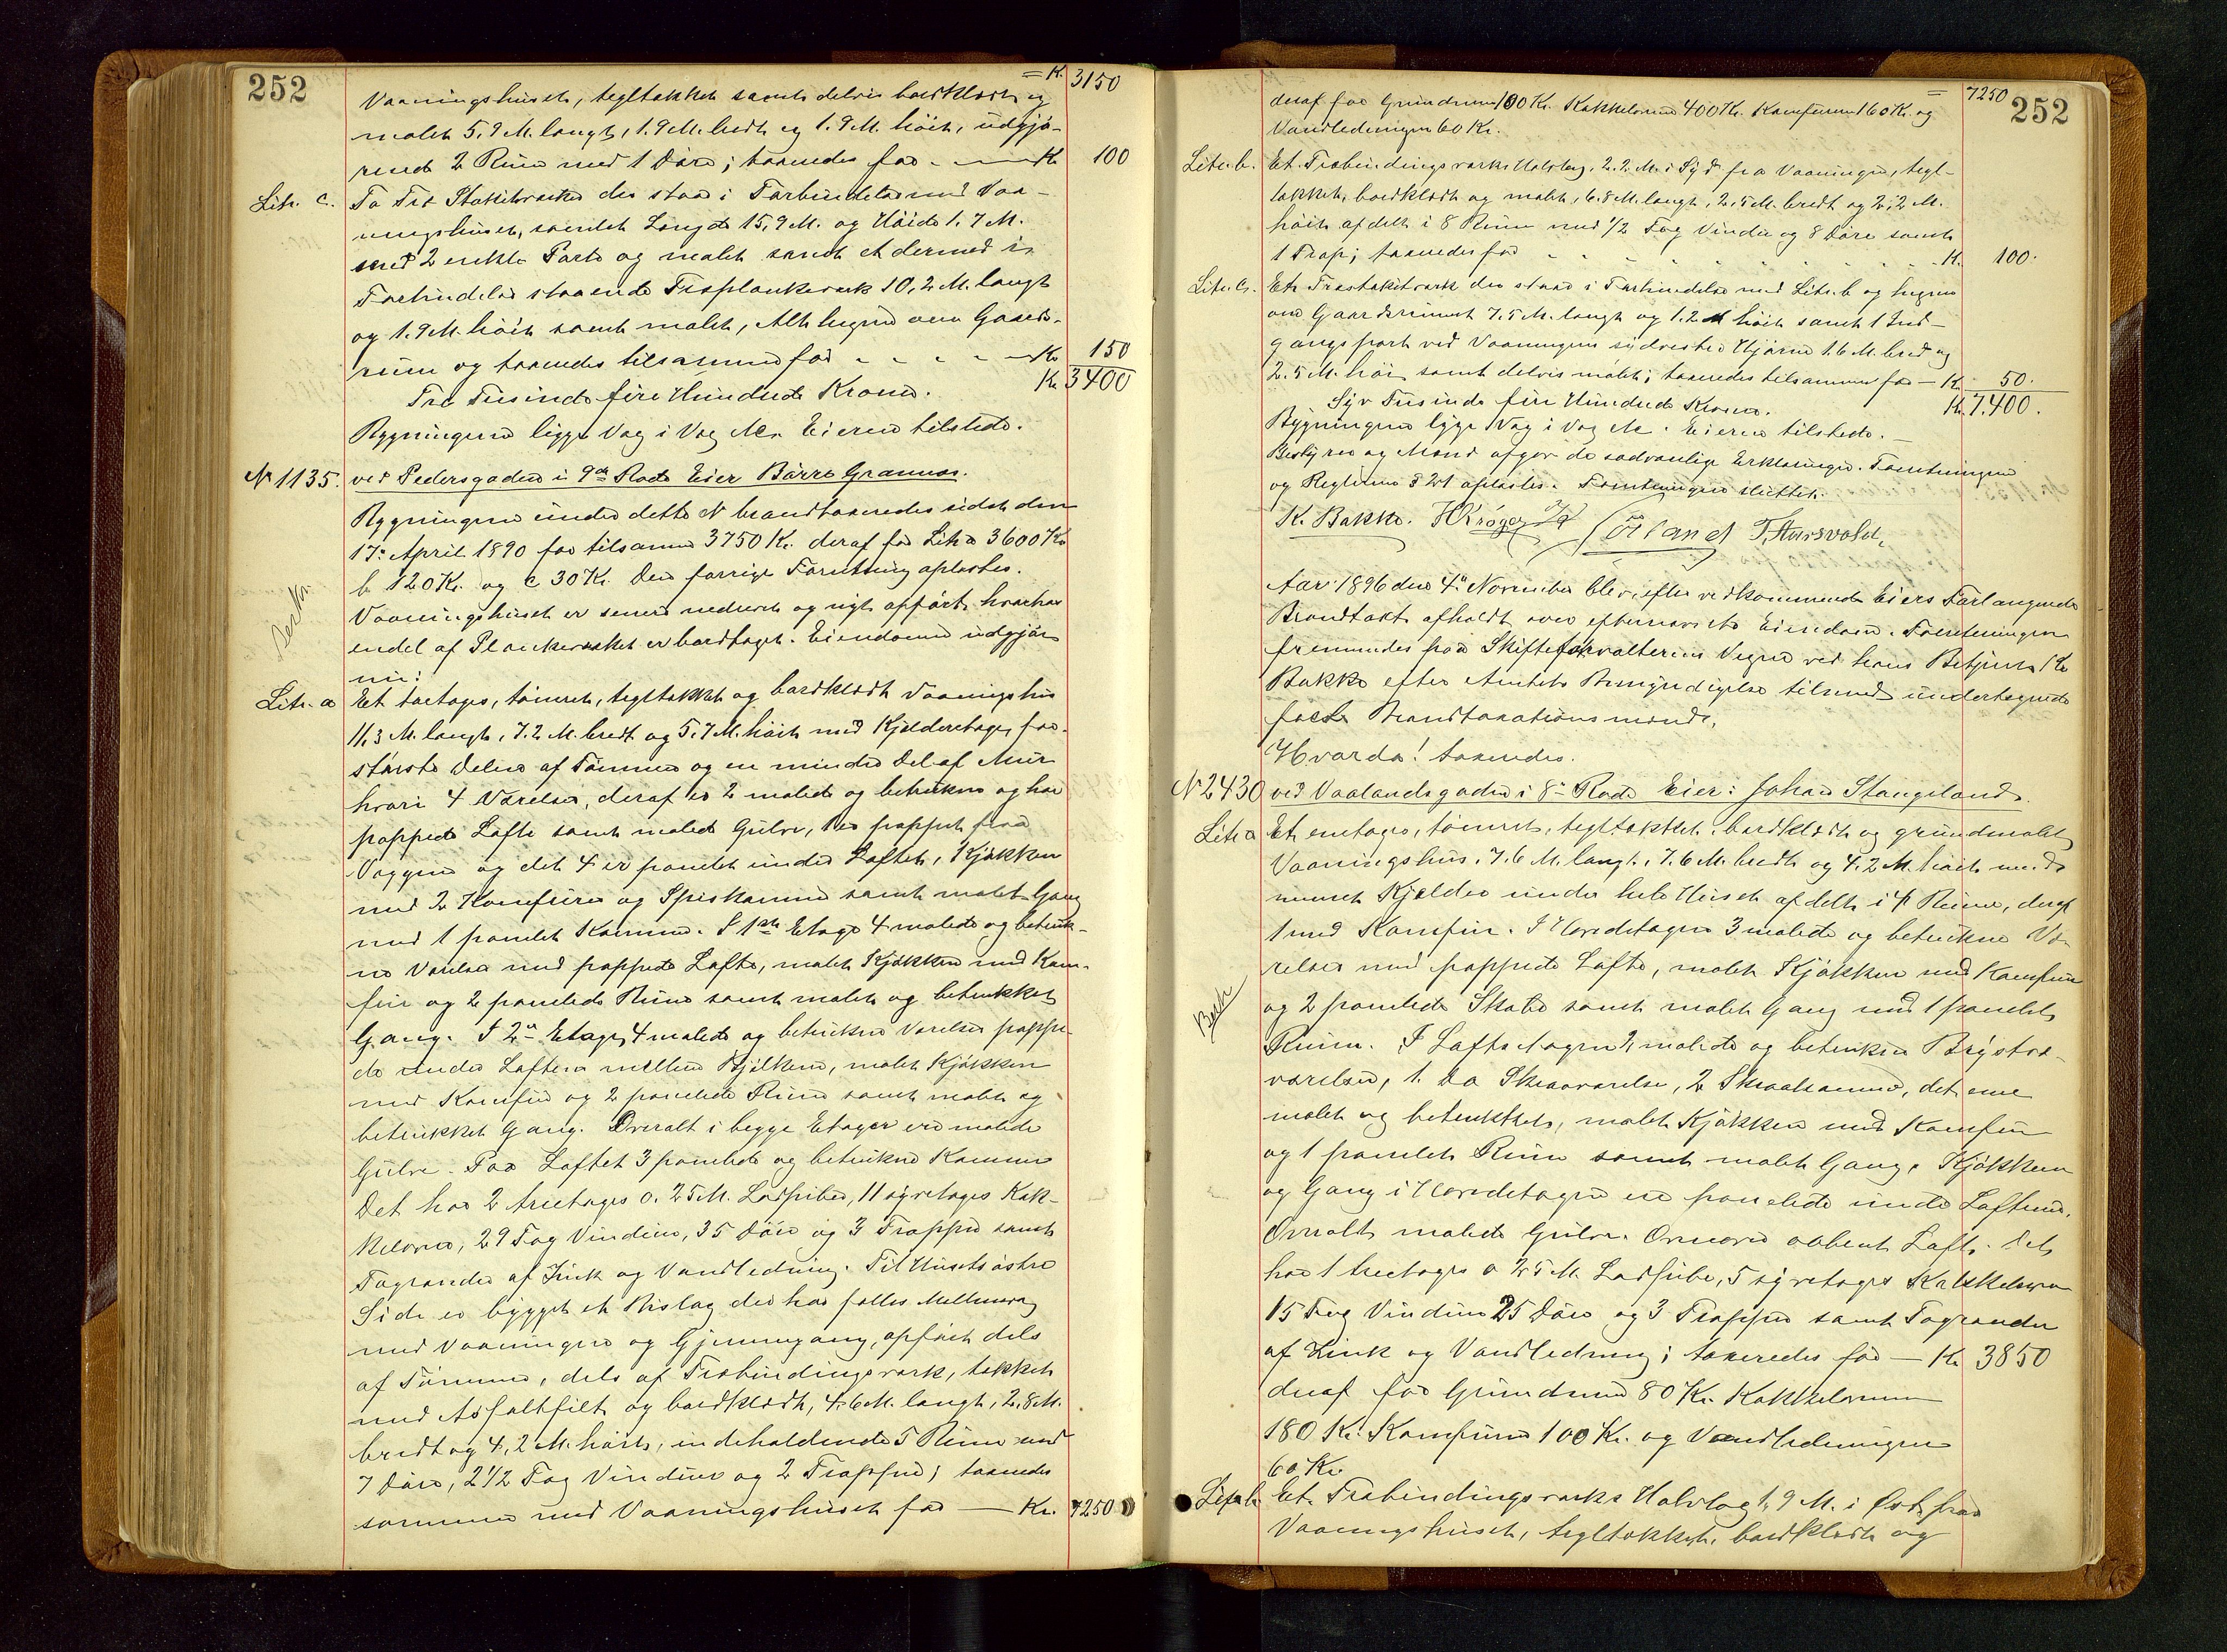 252
= K. 3150
Vaaningshuset, tegltækket samt delvis bordklædt og
malet 5,9 M. langt, 1.9 M. bredt og 1.9 M. höit, udgjö-
rende 2 Rum med 1 Dör; taxeredes for - Kr 100
Litr. c. To Træ Stakitværker der staar i Forbindelse med Vaa-
ningshuset, samlet Længde 15,9 M. og Höide 1.7 M.
med 2 enkle Porte og malet samt et dermed i
Forbindelse staaende Træplankeværk 10,2 M. langt
og 1.9 M. höit samt malet, Alt hegner om Gaards-
rum og taxeredes tilsammen for - - - - Kr 150
Tre Tusinde fire Hundrede Kroner. Kr 3400
Bygningerne ligge Væg i Væg Me. Eieren tilstede.
N 1135. ved Pedersgaden i 9de Rode Eier Börre Grannes.
Bygningerne under dette N brandtaxeredes sidst den
17. April 1890 for tilsammen 3750 Kr. deraf for Litr a 3600 Kr
b 120 Kr. og c 30 Kr. Den forrige Forretning oplæstes.
Vaaningshuset er senere nedrevet og nyt opfört, hvorhos
endel af Plankeværket er borttaget. Eiendommen udgjör
nu:
Litr. a Et toetages, tömret, tegltækket og bordklædt Vaaningshus
11,3 M. langt, 7.2 M. bredt og 5,7 M. höit med Kjelderetage, for
störste Delen af Tömmer og en mindre Del af Mur
hvori 4 Værelser, deraf er 2 malede og betrukne og har
pappede Lofte samt malede Gulve, 1 er pappet paa
Væggene og det 4 er panelet under Loftet, 1 Kjökken
med 2 Komfurer og Spiskammer samt malet Gang
med 1 panelet Kammer. I 1ste Etage 4 malede og betruk-
ne Værelser med pappede Lofte, malet Kjökken med Kom-
fur og 2 panelede Rum samt malet og betrukket
Gang. I 2den Etage, 4 malede og betrukne Værelser pappe-
de under Loftene mellem Bjelkerne, malet Kjökken
med Komfur og 2 panelede Rum samt malet og
betrukket Gang. Overalt i begge Etager ere malede
Gulve. Paa Loftet 3 panelede og betrukne Kammer
Det har 2 treetages o. 25 M. Ladpiber, 11 syvetages Kak-
kelovne, 29 Fag Vinduer, 35 Döre og 3 Trapper samt
Tagrender af Zink og Vandledning. Til Husets östre
Side er bygget et Bislag der har fælles Mellemvæg
med Vaaningen og Gjennemgang, opfört dels
af Tömmer, dels af Træbindingsværk, tækket
med Asfaltfilt og bordklædt, 4.6 M. langt, 2,8 M.
bredt og 4,2 M. höit, indeholdende 5 Rum med
7 Döre, 2 1/2 Fag Vinduer og 2 Trapper; taxeredes
sammen med Vaaningshuset for - Kr. 7250
= 7250 252
deraf for Grundmur 100 Kr. Kakkelovnene 400 Kr. Komfurene 160 Kr. og
Vandledningen 60 Kr.
Litr. b. Et Træbindingsværks Halvtag, 2.2 M. i Syd fra Vaaningen, tegl-
tækket, bordklædt og malet, 6.8 M. langt, 2,5 M. bredt og 2,2 M.
höit afdelt i 8 Rum med 1/2 Fag Vindue og 8 Döre samt
1 Trap; taxeredes for - - - - K. 100.
Litr. c. Et Træstakitværk der staar i Forbindelse med Litr. b og hegner
om Gaardsrummet 7.5 M. langt og 1.2 M höit samt 1 Ind-
gangsport ved Vaaningens sydvestre Hjörne 1.6 M. bred og
2.5 M. höi samt delvis malet; taxeredes tilsammen for - K. 50.
Syv Tusinde fire Hundrede Kroner. K. 7.400.
Bygningerne ligge Væg i Væg Me. Eieren tilstede.
Bestyrer og Mænd afgav de sædvanlige Erklæringer. Forretningen
og Reglerne § 21 oplæstes. Forretningen sluttet.
K. Bakke. H Kröger Sörland T. Aarsvold.
Aar 1896 den 4de November blev, efter vedkommende Eiers Forlangende
Brandtaxt afholdt over efternævnte Eiendom. Forretningen
fremmedes paa Skifteforvalterens Vegne ved hans Betjent K
Bakke efter Amtets Bemyndigelse tilmed undertegnede
faste Brandtaxationsmænd.
Hvorda! taxeredes.
N 2430 ved Vaalandsgaden i 8de Rode Eier: Johan Stangeland.
Litr a Et enetages, tömret, tegltækket, bordklædt og grundmalet
Vaaningshus, 7.6 M. langt, 7.6 M. bredt og 4.2 M. höit med
muret Kjelder under hele Huset afdelt i 4 Rum, deraf
1 med Komfur. I Hovedetagen 3 malede og betrukne Væ-
relser med pappede Lofte, malet Kjökken med Komfur
og 2 panelede Skabe samt malet Gang med 1 panelet
Beskr
Rum. I Loftsetagen 2 malede og betrukne Brystvæ-
værelser, 1 do Skraaværelse, 2 Skraakammer, det ene
malet og betrukket, malet Kjökken med Komfur
og 1 panelet Rum samt malet Gang. Kjökken
og Gang i Hovedetagen ere panelede under Loftene.
Overalt malede Gulve. Ovenover aabent Loft. Det
har 1 treetages o 25 M. Ladpibe, 5 syvetages Kakkelovne
15 Fag Vinduer 25 Döre og 3 Trapper samt Tagrender
af Zink og Vandledning; taxeredes for - Kr 3850
deraf for Grundmur 80 Kr. Kakkelovnene
180 Kr. Komfurene 100 Kr. og Vandledningen
60 Kr.
Litr b Et Træbindingsværks Halvtag 1,9 M. i Öst fra
Vaaningshuset, tegltækket, bordklædt og